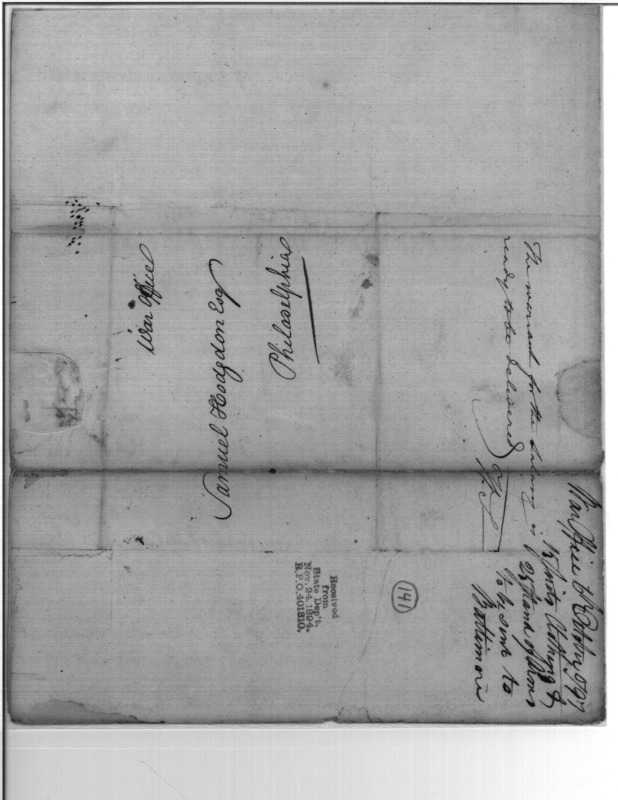 War Office
Samuel Hodgdon Esq
Philadelphia
The warrant for the salary is
ready to be delivered
War Office October 1797
Suits Clothing &
25 Stand of Arms
To be sent to
Baltimore
(141)
Received
from
State Dep't,
Nov. 24, 1894.
R.P.O. 401810.